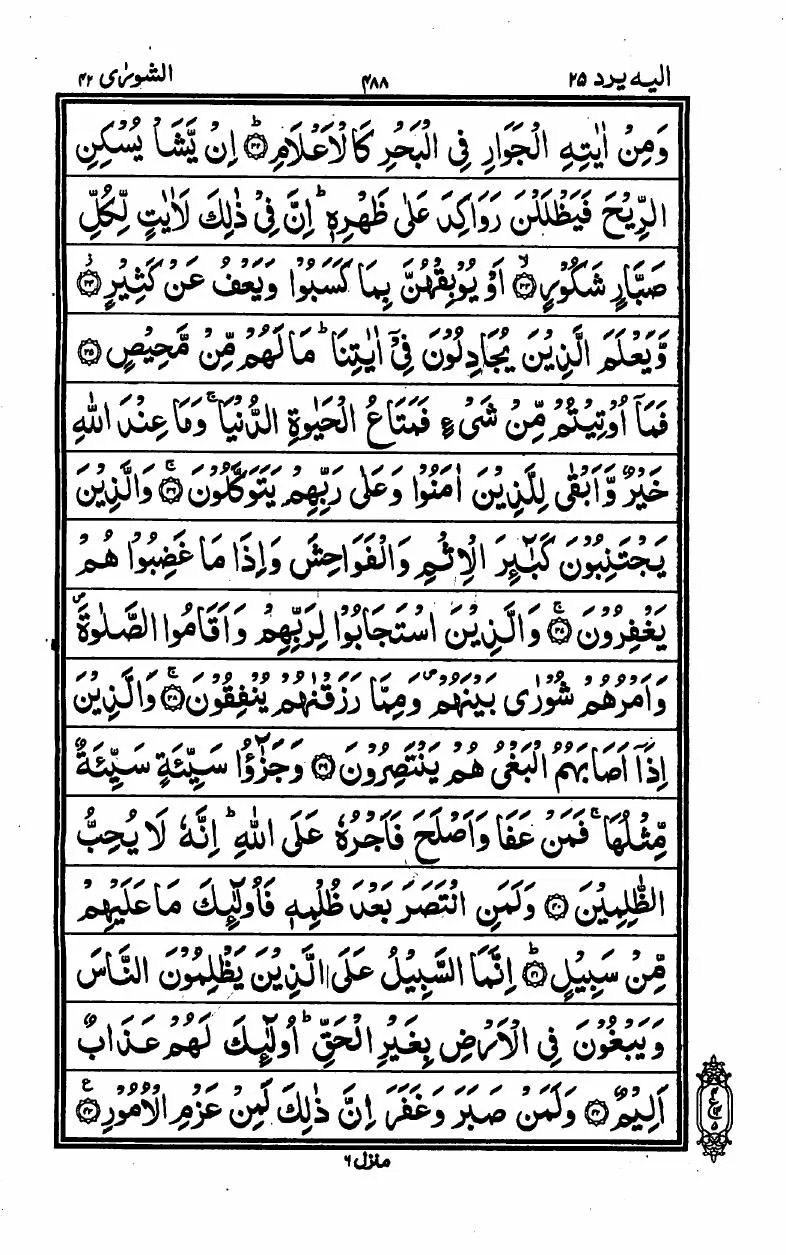 اليه يرد ٢٥
٤٨٨
الشورٰى ٤٢
وَمِنْ اٰيٰتِهِ الْجَوَارِ فِي الْبَحْرِ كَالْاَعْلَامِ ؕ‏﴿۳۲﴾ اِنْ يَّشَاْ يُسْكِنِ
الرِّيْحَ فَيَظْلَلْنَ رَوَاكِدَ عَلٰى ظَهْرِهٖ ؕ اِنَّ فِيْ ذٰلِكَ لَاٰيٰتٍ لِّكُلِّ
صَبَّارٍ شَكُوْرٍ ۙ‏﴿۳۳﴾ اَوْ يُوْبِقْهُنَّ بِمَا كَسَبُوْا وَيَعْفُ عَنْ كَثِيْرٍ ؗ‏﴿۳۴﴾
وَّيَعْلَمَ الَّذِيْنَ يُجَادِلُوْنَ فِيْۤ اٰيٰتِنَا ؕ مَا لَهُمْ مِّنْ مَّحِيْصٍ ﴿۳۵﴾
فَمَاۤ اُوْتِيْتُمْ مِّنْ شَيْءٍ فَمَتَاعُ الْحَيٰوةِ الدُّنْيَا ۚ وَمَا عِنْدَ اللّٰهِ
خَيْرٌ وَّاَبْقٰى لِلَّذِيْنَ اٰمَنُوْا وَعَلٰى رَبِّهِمْ يَتَوَكَّلُوْنَ ۚ‏﴿۳۶﴾ وَالَّذِيْنَ
يَجْتَنِبُوْنَ كَبٰٓئِرَ الْاِثْمِ وَالْفَوَاحِشَ وَاِذَا مَا غَضِبُوْا هُمْ
يَغْفِرُوْنَ ۚ‏﴿۳۷﴾ وَالَّذِيْنَ اسْتَجَابُوْا لِرَبِّهِمْ وَاَقَامُوا الصَّلٰوةَ ۪
وَاَمْرُهُمْ شُوْرٰى بَيْنَهُمْ ۪ وَمِمَّا رَزَقْنٰهُمْ يُنْفِقُوْنَ ۚ‏﴿۳۸﴾ وَالَّذِيْنَ
اِذَاۤ اَصَابَهُمُ الْبَغْيُ هُمْ يَنْتَصِرُوْنَ ﴿۳۹﴾ وَجَزٰٓؤُا سَيِّئَةٍ سَيِّئَةٌ
مِّثْلُهَا ۚ فَمَنْ عَفَا وَاَصْلَحَ فَاَجْرُهٗ عَلَى اللّٰهِ ؕ اِنَّهٗ لَا يُحِبُّ
الظّٰلِمِيْنَ ﴿۴۰﴾ وَلَمَنِ انْتَصَرَ بَعْدَ ظُلْمِهٖ فَاُولٰٓئِكَ مَا عَلَيْهِمْ
مِّنْ سَبِيْلٍ ؕ‏﴿۴۱﴾ اِنَّمَا السَّبِيْلُ عَلَى الَّذِيْنَ يَظْلِمُوْنَ النَّاسَ
وَيَبْغُوْنَ فِي الْاَرْضِ بِغَيْرِ الْحَقِّ ؕ اُولٰٓئِكَ لَهُمْ عَذَابٌ
اَلِيْمٌ ﴿۴۲﴾ وَلَمَنْ صَبَرَ وَغَفَرَ اِنَّ ذٰلِكَ لَمِنْ عَزْمِ الْاُمُوْرِ ﴿۴۳﴾ ع
منزل ٦